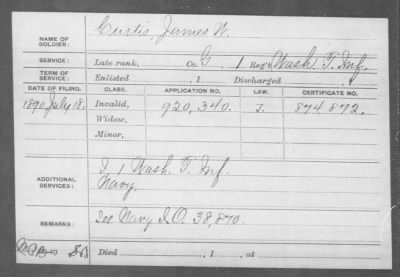 NAME OF SOLDIER: Curtis, James W.
SERVICE: Late rank, Co. G, 1 Reg't Wash. T. Inf.
TERM OF SERVICE: Enlisted , 1 Discharged , 1
DATE OF FILING. CLASS. APPLICATION NO. LAW. CERTIFICATE NO.
1890 July 18. Invalid, 920,340. J. 874872.
Widow,
Minor,
ADDITIONAL SERVICES: I, 1 Wash. T. Inf.
Navy.
REMARKS: See Navy I.O. 38,870.
Died , 1 , at